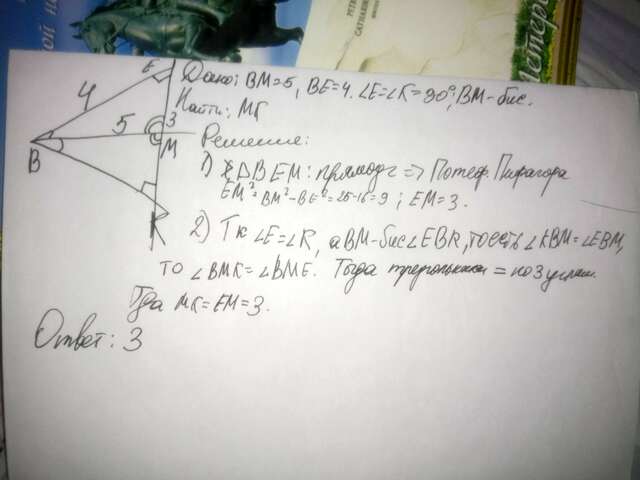 Дано: BM=5, BE=4. ∠E=∠K=90°, BM-бис.
Найти: MK
Решение:
1) △BEM: прямоуг => По теор. Пифагора
EM²=BM²-BE²=25-16=9; EM=3.
2) Тк ∠E=∠K, а BM-бис∠EBK, тоесть ∠KBM=∠EBM,
то ∠BMK=∠BME. Тогда треугольники = по 3 углам.
Тгда MK=EM=3.
Ответ: 3
E
4
5
3
B
M
K